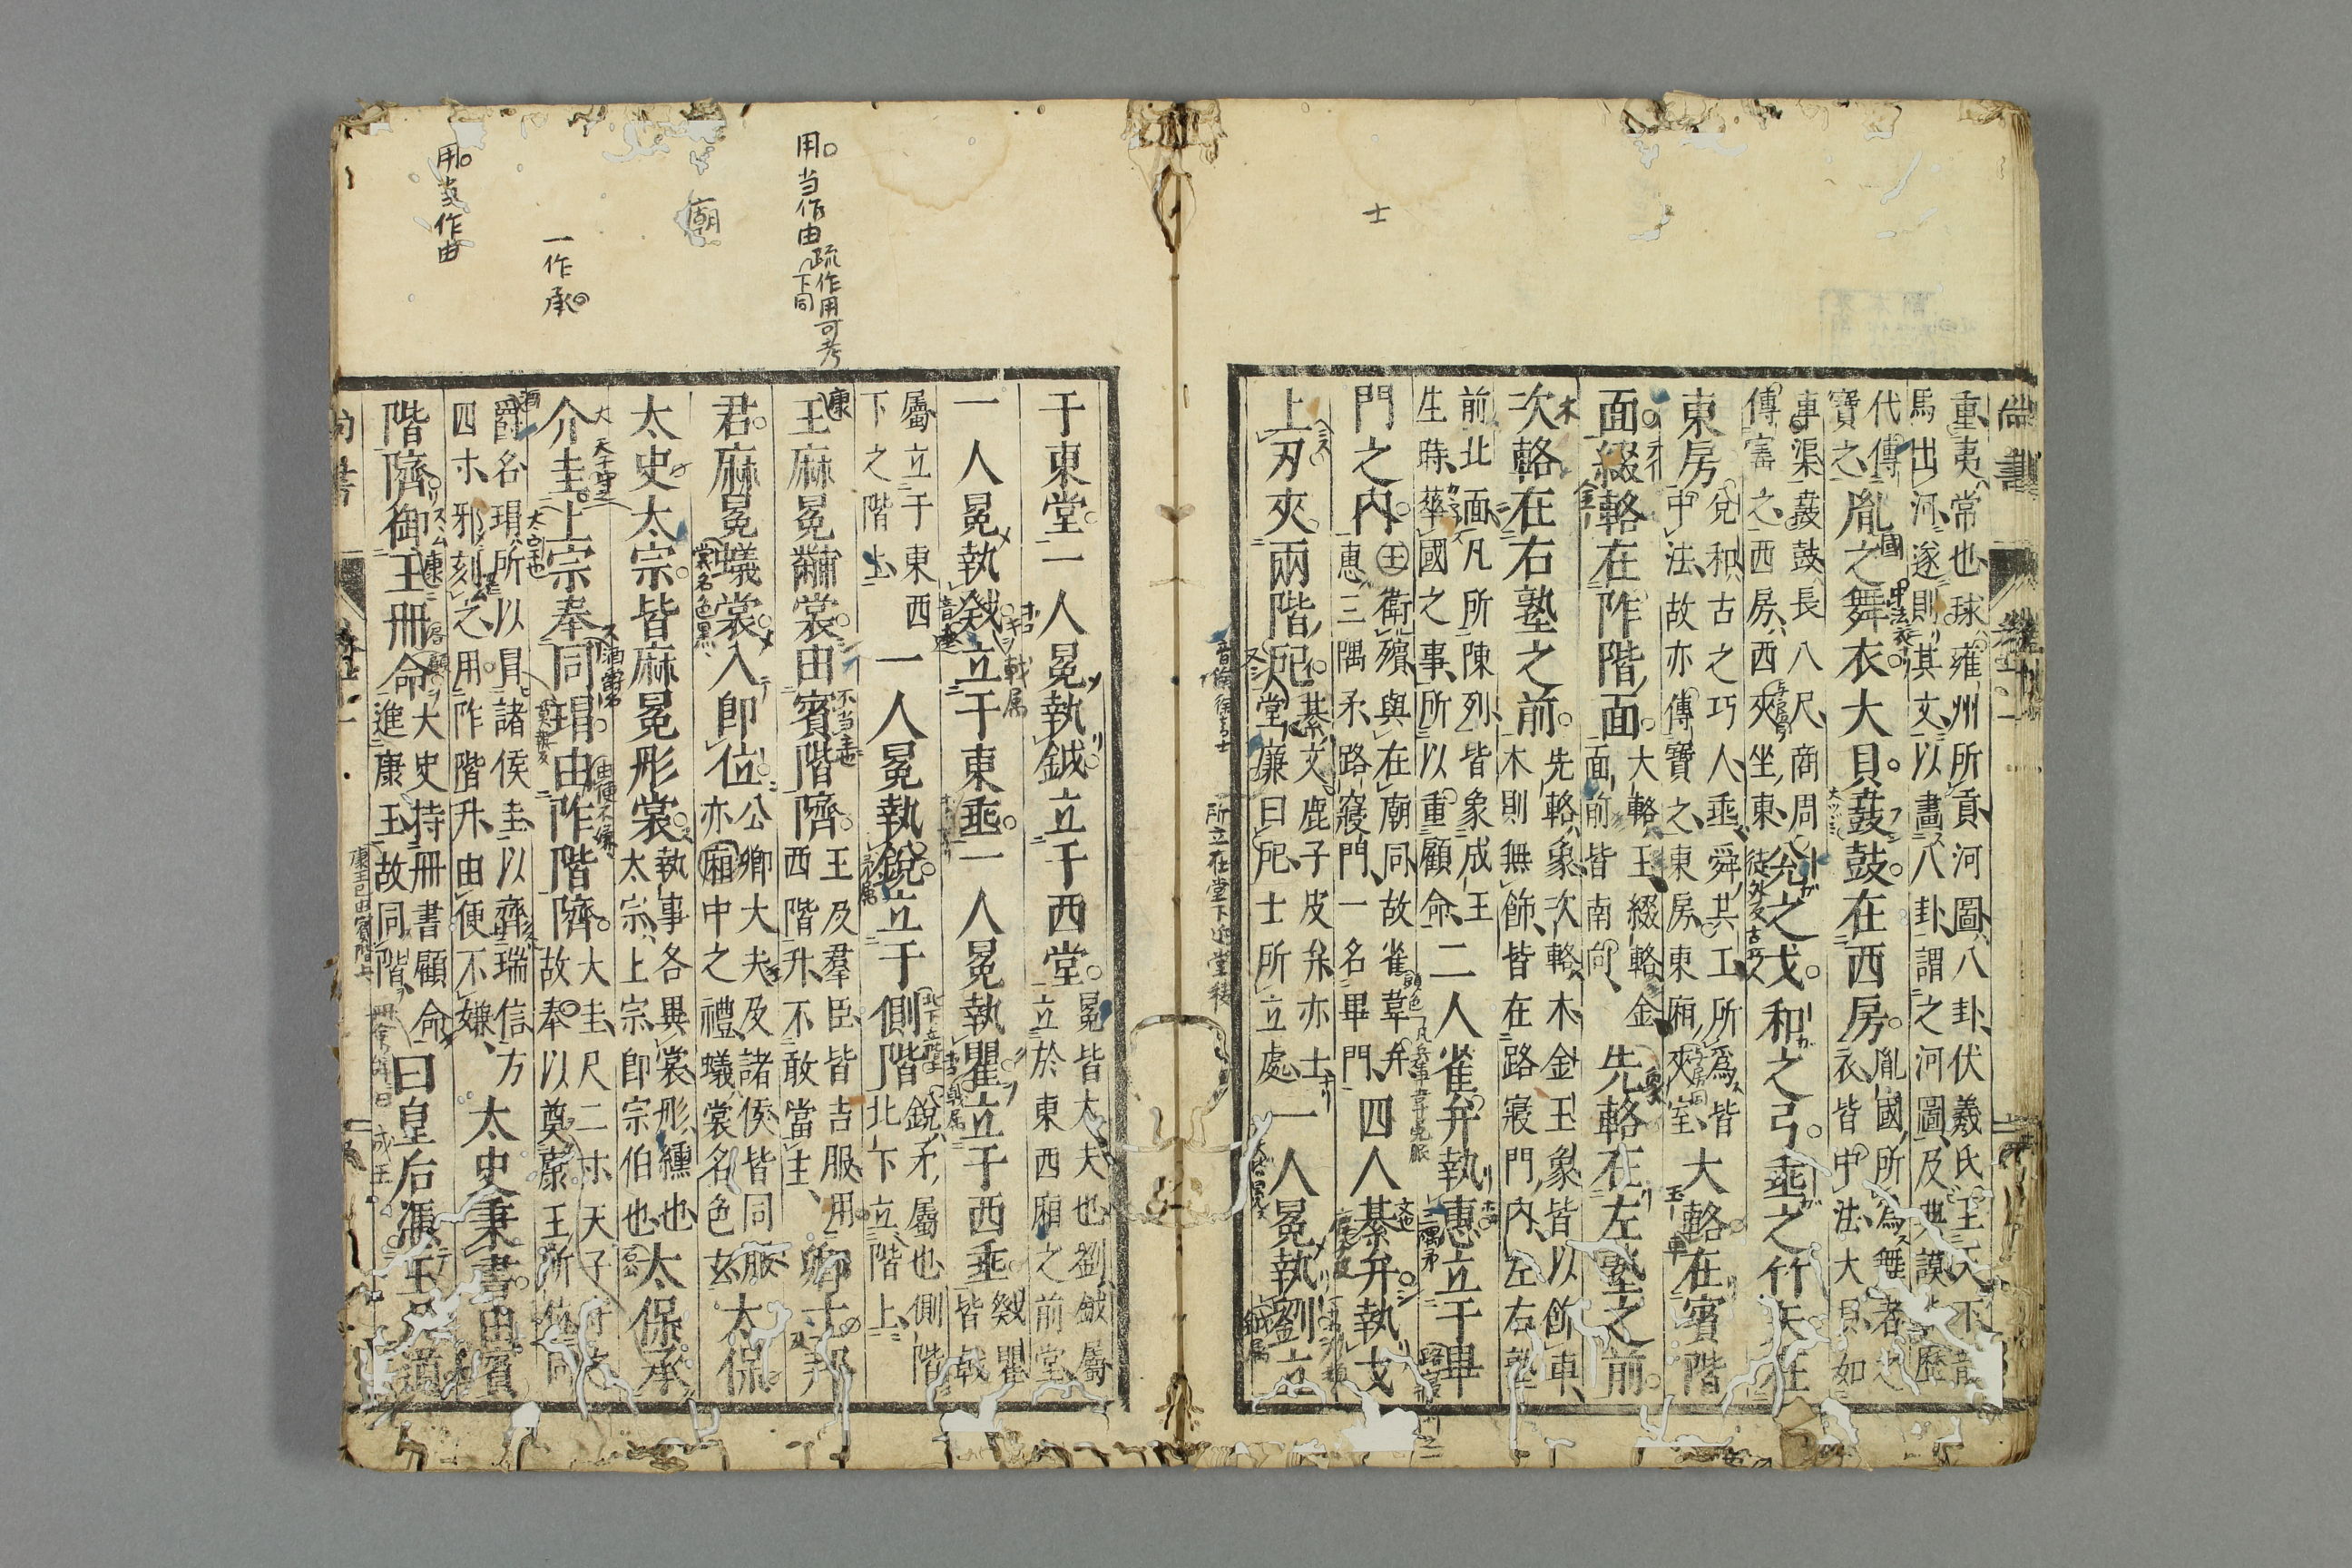 尚書
重、夷、常也、球、雍州所貢、河圖八卦、伏羲氏王天下、龍
馬出河、遂則其文、以畫八卦、謂之河圖、及典謨、歷
代傳寶之、胤之舞衣、大貝、鼖鼓、在西房、胤國所為舞者之衣、皆中法、大貝如
車渠、鼖鼓長八尺、商周傳寶之、西房、西夾坐東、兌之戈、和之弓、垂之竹矢、在
東房、兌和、古之巧人、垂、舜共工、所爲皆中法、故亦傳寶之、東房、東廂夾室、大輅在賓階
面、綴輅在阼階面、大輅、玉、綴輅、金、面前皆南向、先輅在左塾之前、
次輅在右塾之前、先輅、象、次輅、木、金玉象皆以飾車、木則無飾、皆在路寢門內、左右塾
前北面、凡所陳列、皆象成王生時、華國之事、所以重顧命、二人雀弁執惠、立于畢
門之內、王衛殯、與在廟同、故雀韋弁、惠、三隅矛、路寢門、一名畢門、四人綦弁、執戈
上刃、夾兩階戺、綦文鹿子皮弁、亦士、堂廉曰戺、士所立處、一人冕執劉、立
于東堂、一人冕執鉞、立于西堂、冕、皆大夫也、劉、鉞屬、立於東西廂之前堂、
一人冕執戣、立于東垂、一人冕執瞿、立于西垂、戣瞿皆戟
屬、立于東西下之階上、一人冕執銳、立于側階、銳、矛屬也、側階、北下立階上、
王麻冕黼裳、由賓階隮、王及羣臣皆吉服、用西階升、不敢當主、卿士邦
君、麻冕蟻裳、入即位、公卿大夫及諸侯皆同服、亦廂中之禮、蟻、裳名、色玄、太保
太史太宗、皆麻冕彤裳、執事各異裳、彤、纁也、太宗、上宗、即宗伯也、太保承
介圭、上宗奉同瑁、由阼階隮、大圭尺二寸、天子守之、故奉以奠康王所位、同
爵名、瑁、所以冒諸侯圭、以齊瑞信、方四寸、邪刻之、用阼階升、由便不嫌、太史秉書、由賓
階隮、御王冊命、大史持冊書顧命、進康王、故同階、曰、皇后憑玉几、道
士
用当作由疏作用可考
下同
廟
一作承
用当作由